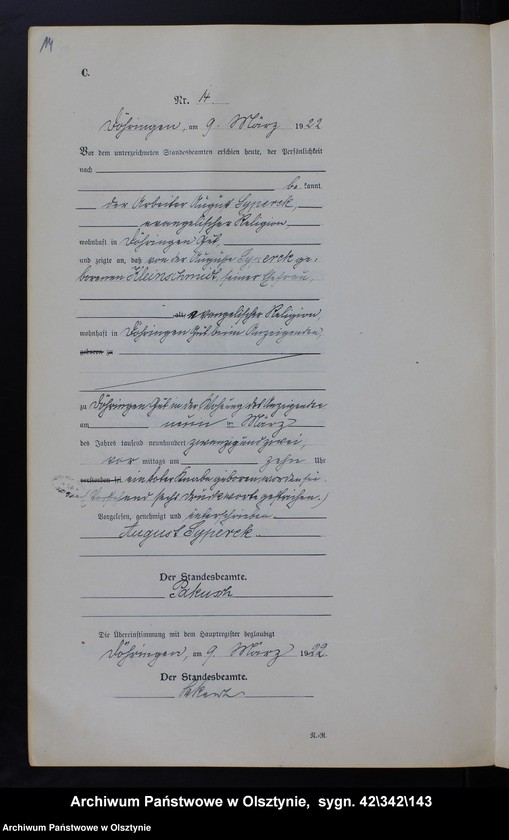 C.
Nr. 4.
Döhringen, am 9. März 1922
Vor dem unterzeichneten Standesbeamten erschien heute, der Persönlichkeit
nach
be kannt
der Arbeiter August Syperek,
evangelischer Religion,
wohnhaft in Döhringen Gut,
und zeigte an, daß von der Auguste Syperek ge-
borenen Kleinschmidt, seiner Ehefrau,
alt, evangelischer Religion,
wohnhaft in Döhringen Gut beim Anzeigenden,
geboren zu
zu Döhringen Gut in der Wohnung des Anzeigenden
am neun ten März
des Jahres tausend neunhundert zwanzigundzwei,
vor mittags um zehn Uhr
verstorben sei. ein toter Knabe geboren worden sei.
(Vorstehend sechs Druckworte gestrichen.)
Vorgelesen, genehmigt und unterschrieben
August Syperek
Der Standesbeamte.
Die Übereinstimmung mit dem Hauptregister beglaubigt
Döhringen, am 9. März 1922.
Der Standesbeamte.
Archiwum Państwowe w Olsztynie, sygn. 42\342\143
Archiwum Państwowe w Olsztynie